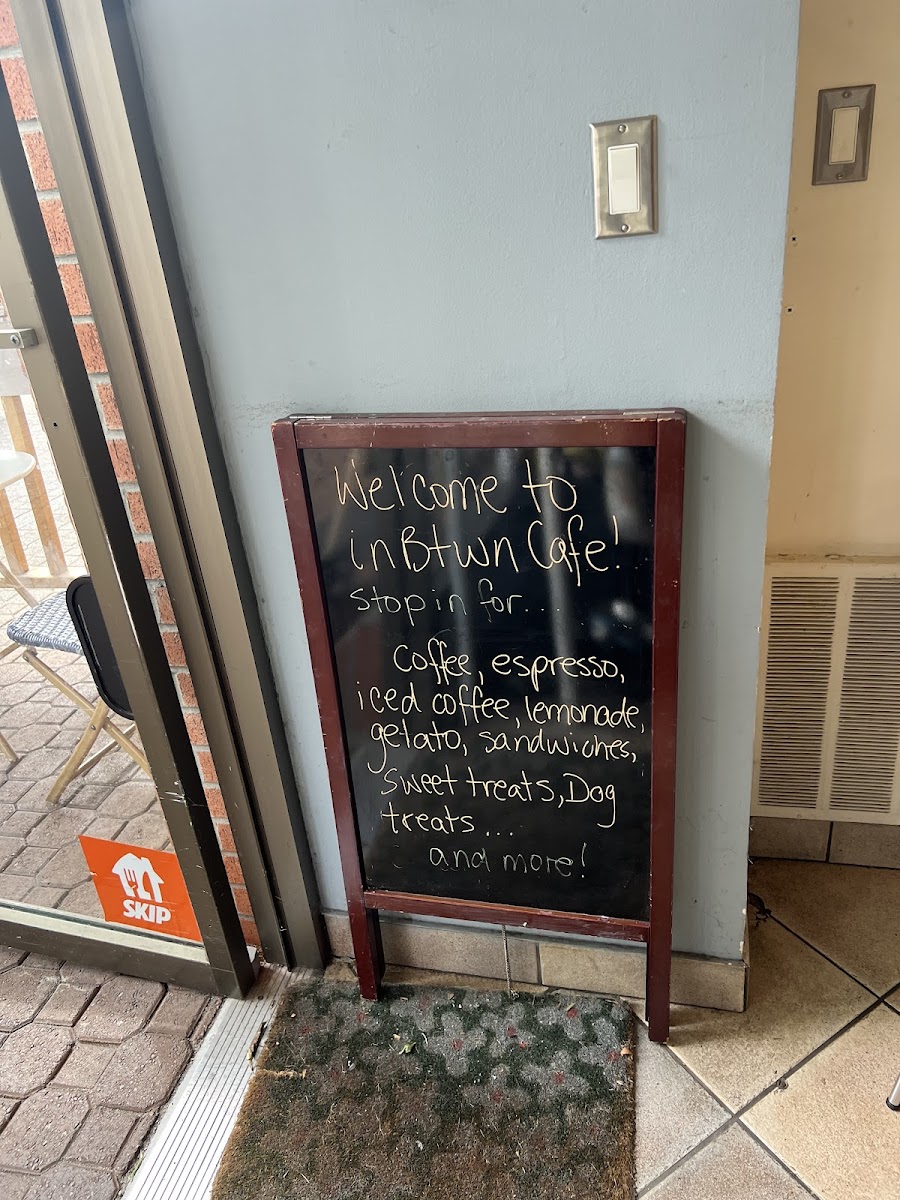 Welcome to
inBtwn Cafe!
stop in for...
coffee, espresso,
iced coffee, lemonade,
gelato, sandwiches,
sweet treats, Dog
treats...
and more!
SKIP